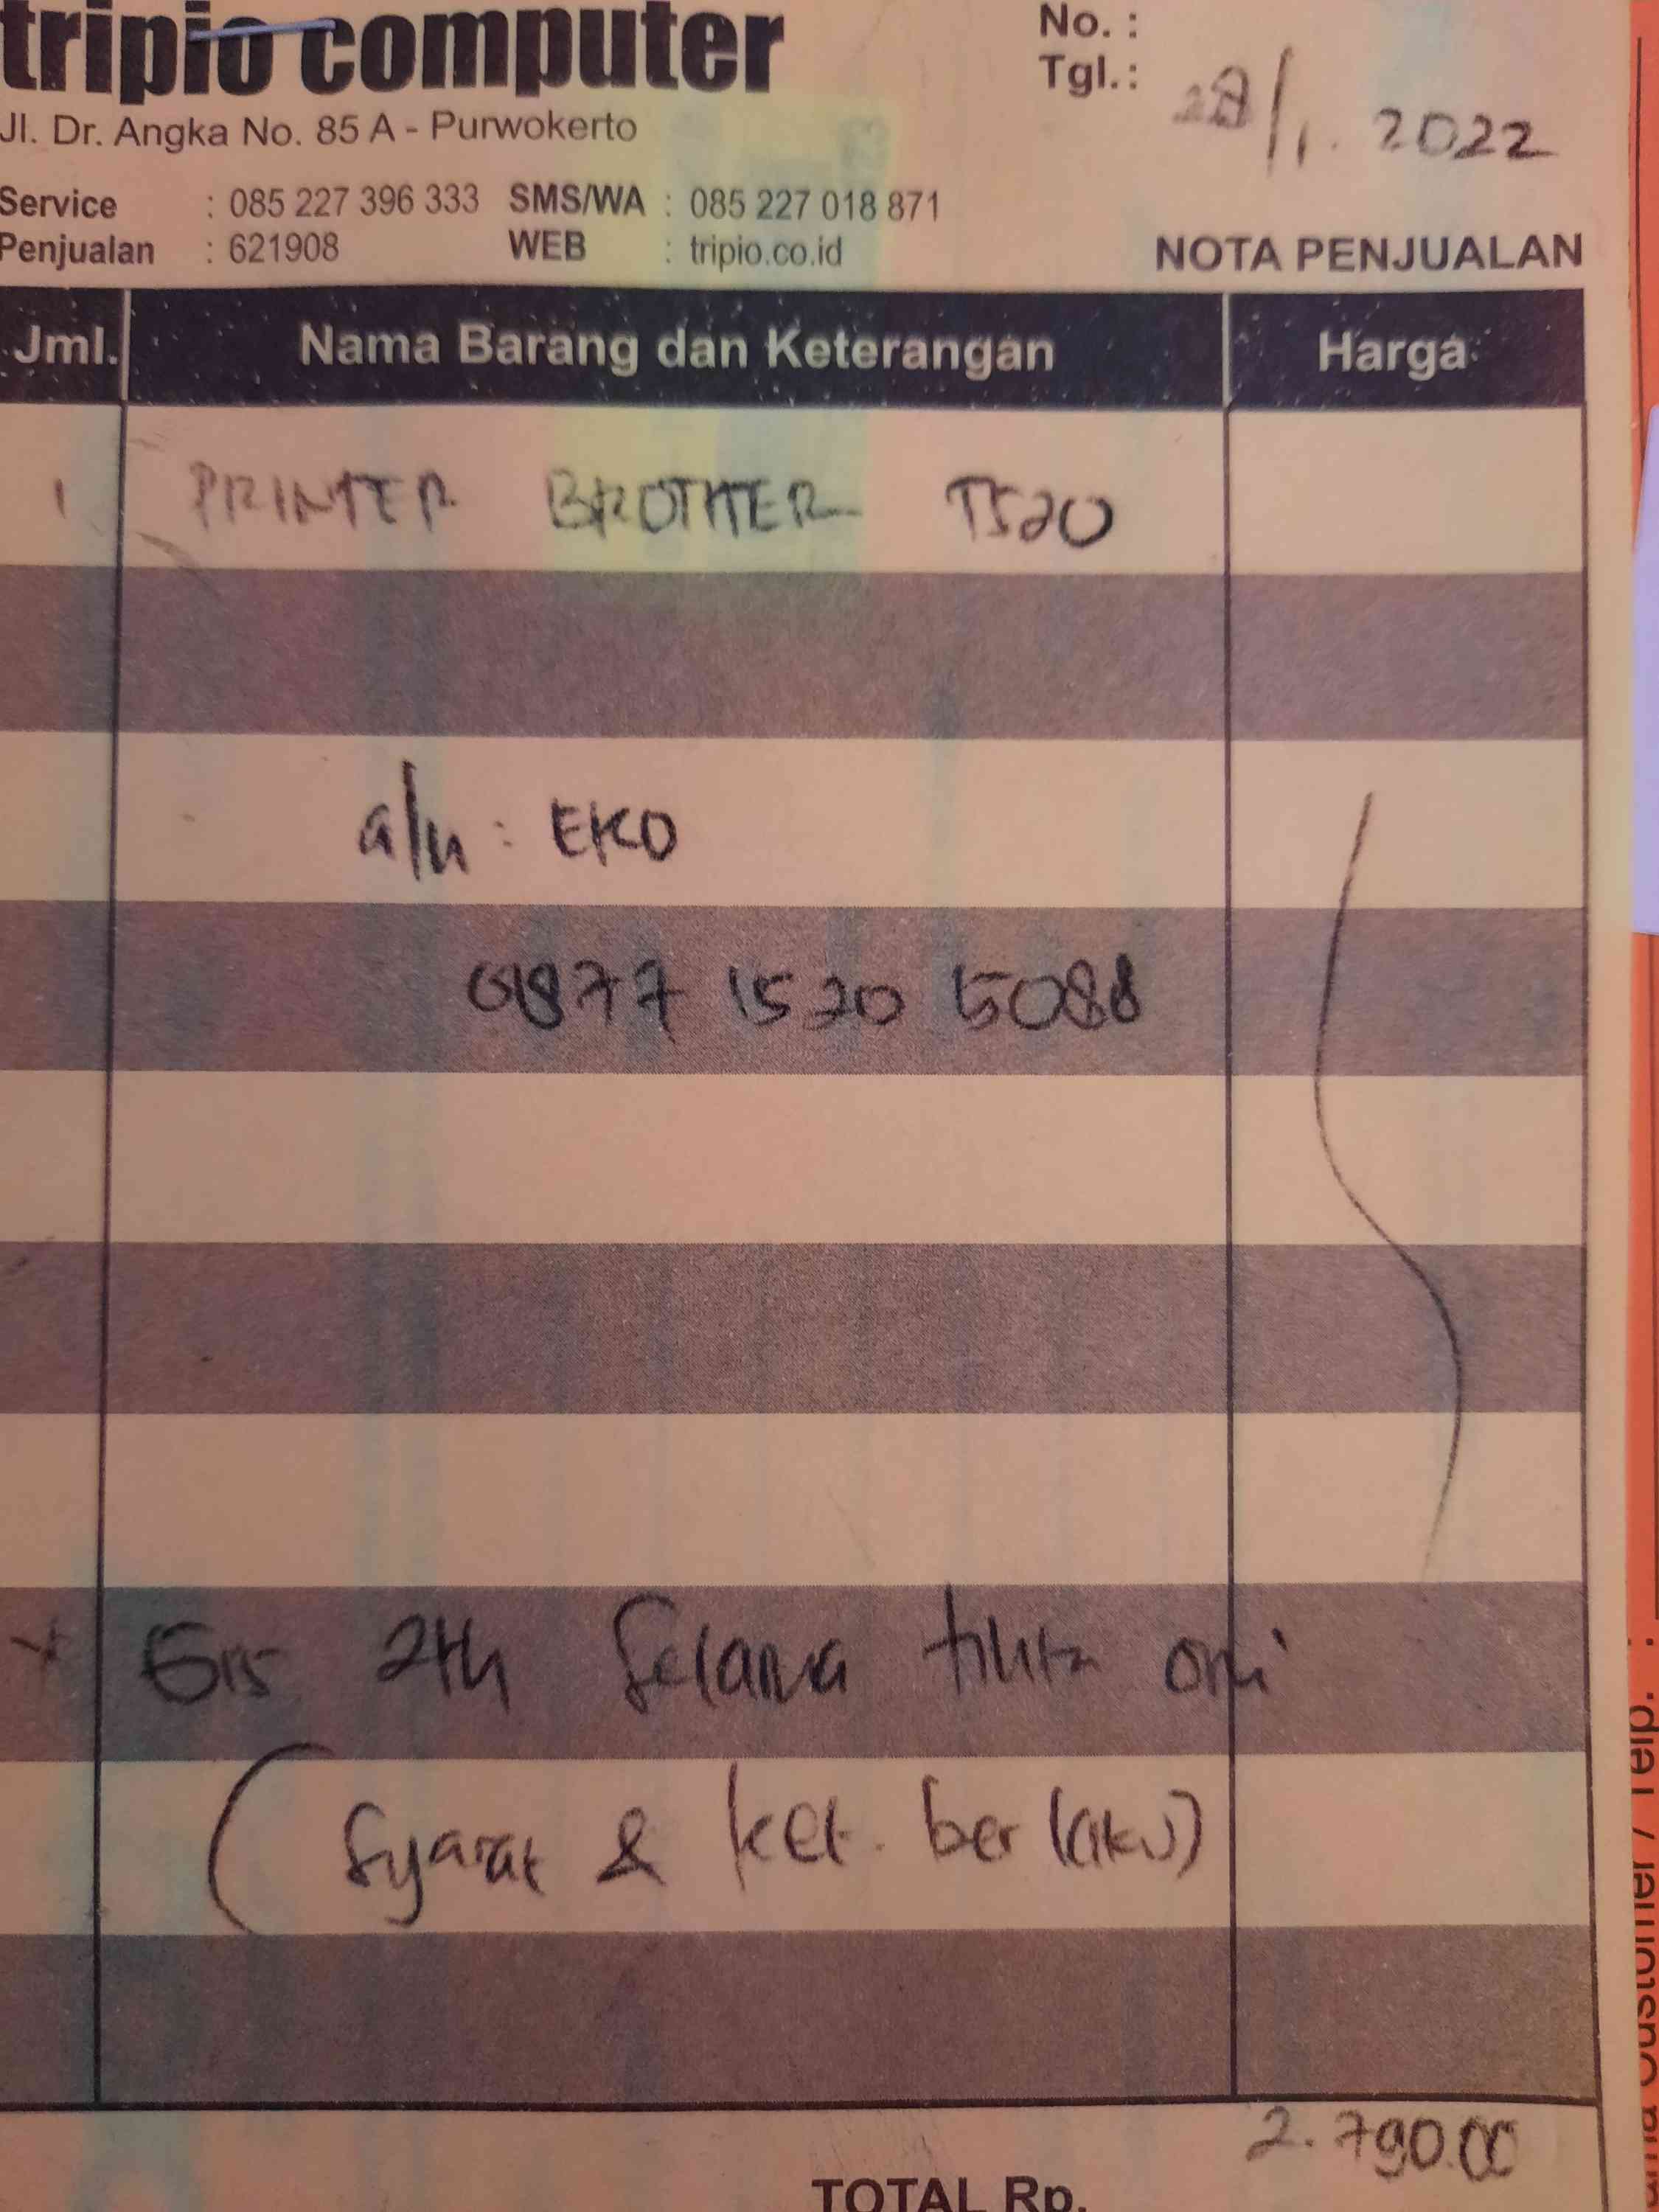 tripio computer
No. :
Tgl.: 28/1. 2022
Jl. Dr. Angka No. 85 A - Purwokerto
Service : 085 227 396 333 SMS/WA : 085 227 018 871
Penjualan : 621908 WEB : tripio.co.id
NOTA PENJUALAN
Jml. Nama Barang dan Keterangan Harga
1 PRINTER BROTHER T520
a/n : EKO
0877 1520 5088
* Grs 2th Selama tinta ori
(Syarat & ket. berlaku)
2.790.00
TOTAL Rp.
/ Telp. :